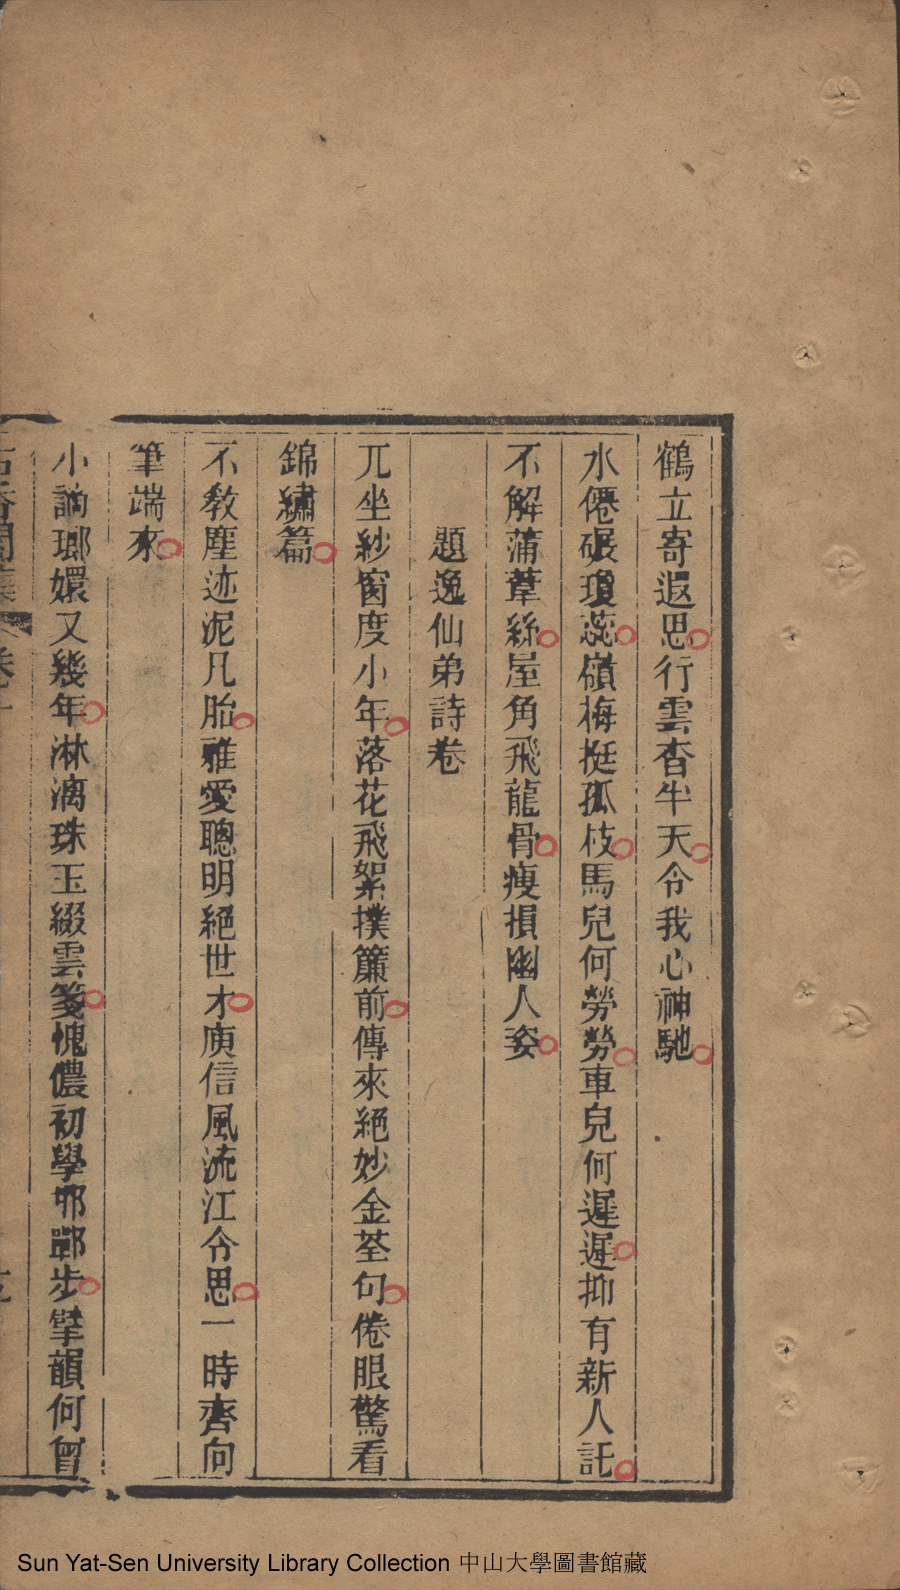 鶴立寄遐思行雲杳半天令我心神馳
水僊碾瓊蕊嶺梅挺孤枝馬兒何勞勞車兒何遲遲抑有新人託
不解蒲葦絲屋角飛龍骨瘦損幽人姿
題逸仙弟詩卷
兀坐紗窗度小年落花飛絮撲簾前傳來絕妙金荃句倦眼驚看
錦繡篇
不敎塵迹泥凡胎雅愛聰明絕世才庾信風流江令思一時齊向
筆端來
小謫瑯嬛又幾年淋漓珠玉綴雲箋愧儂初學邯鄲步擘韻何曾
Sun Yat-Sen University Library Collection 中山大學圖書館藏